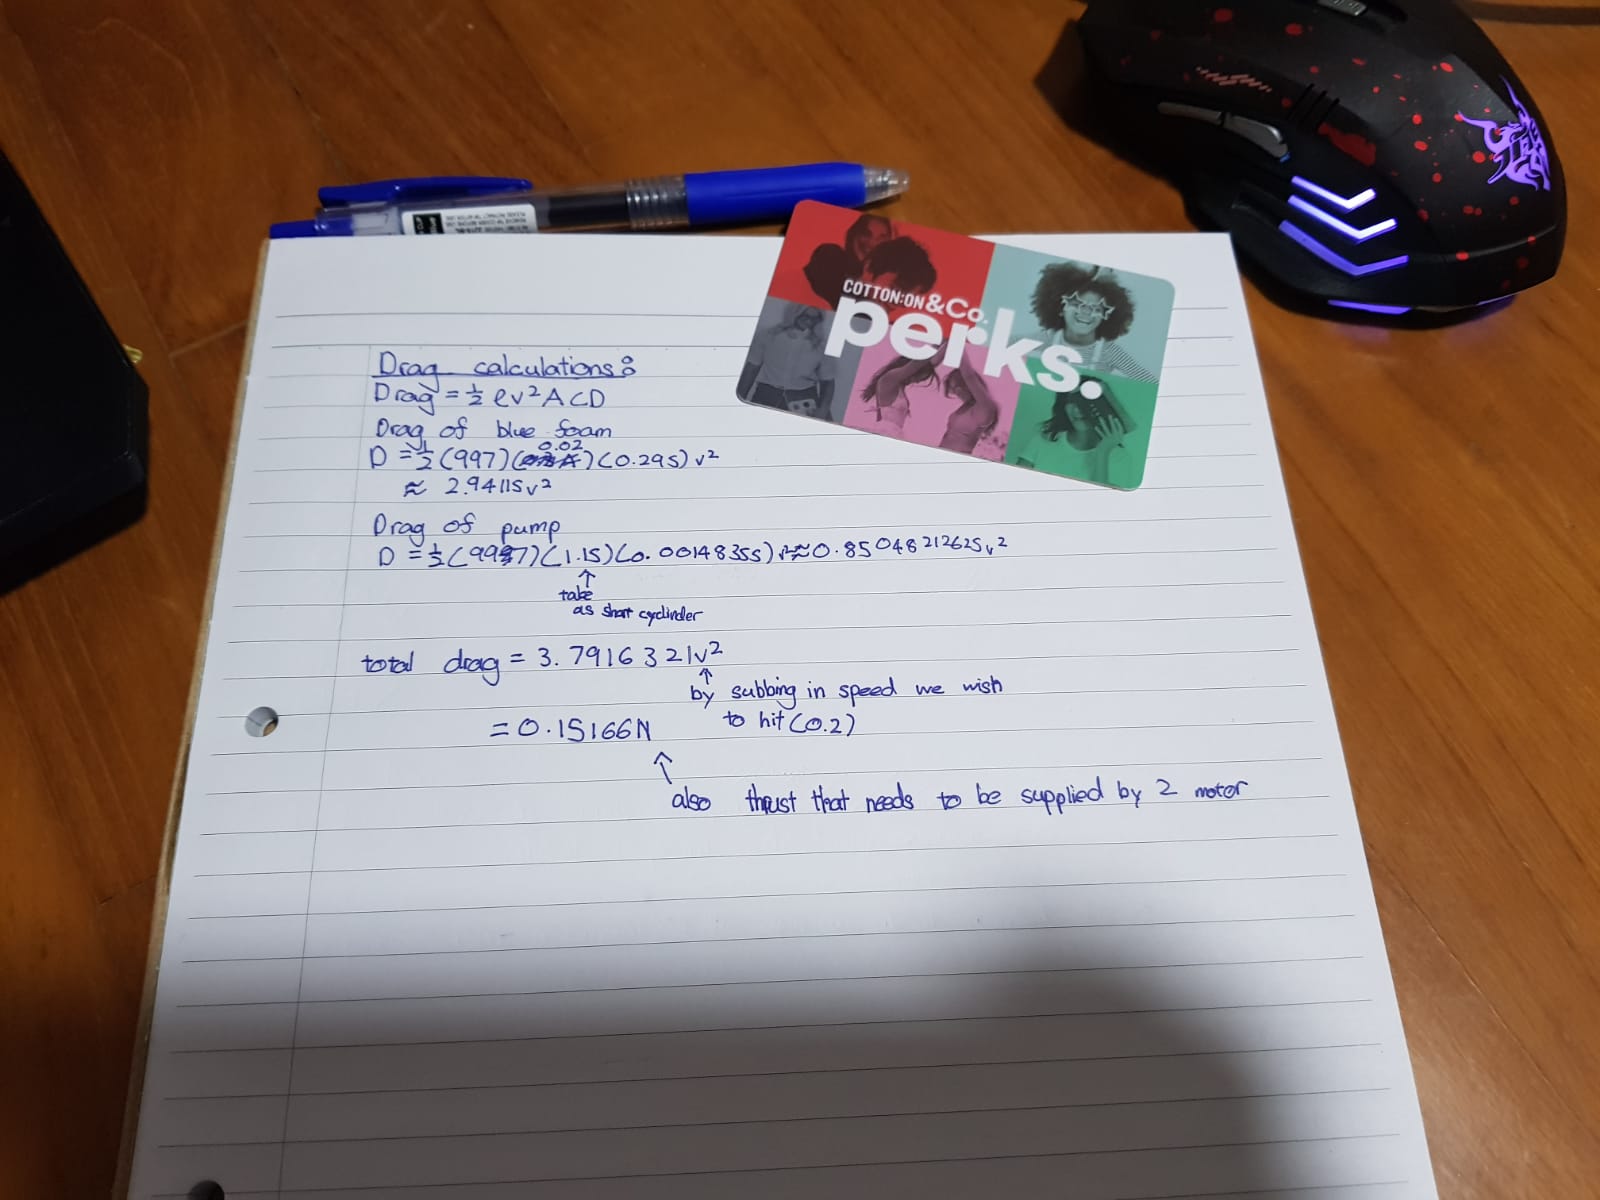 COTTON:ON &Co.
perks.
Drag calculations:
Drag = ½ ρv² A CD
Drag of blue foam
0.02
D = ½ (997)( )(0.295) v²
≈ 2.94115v²
Drag of pump
D = ½ (997)(1.15)(0.00148355) v² ≈ 0.85048212625v²
↑
take
as short cyclinder
total drag = 3.791632 1v²
↑
by subbing in speed we wish
to hit (0.2)
= 0.15166N
↑
also thrust that needs to be supplied by 2 motor